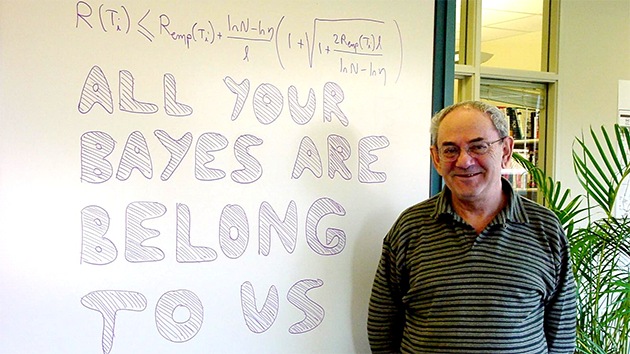 R(Tᵢ) ≤ R_emp(Tᵢ) + (ln N - ln η)/l (1 + √(1 + 2R_emp(Tᵢ)l/(ln N - ln η)))
ALL YOUR
BAYES ARE
BELONG
TO US